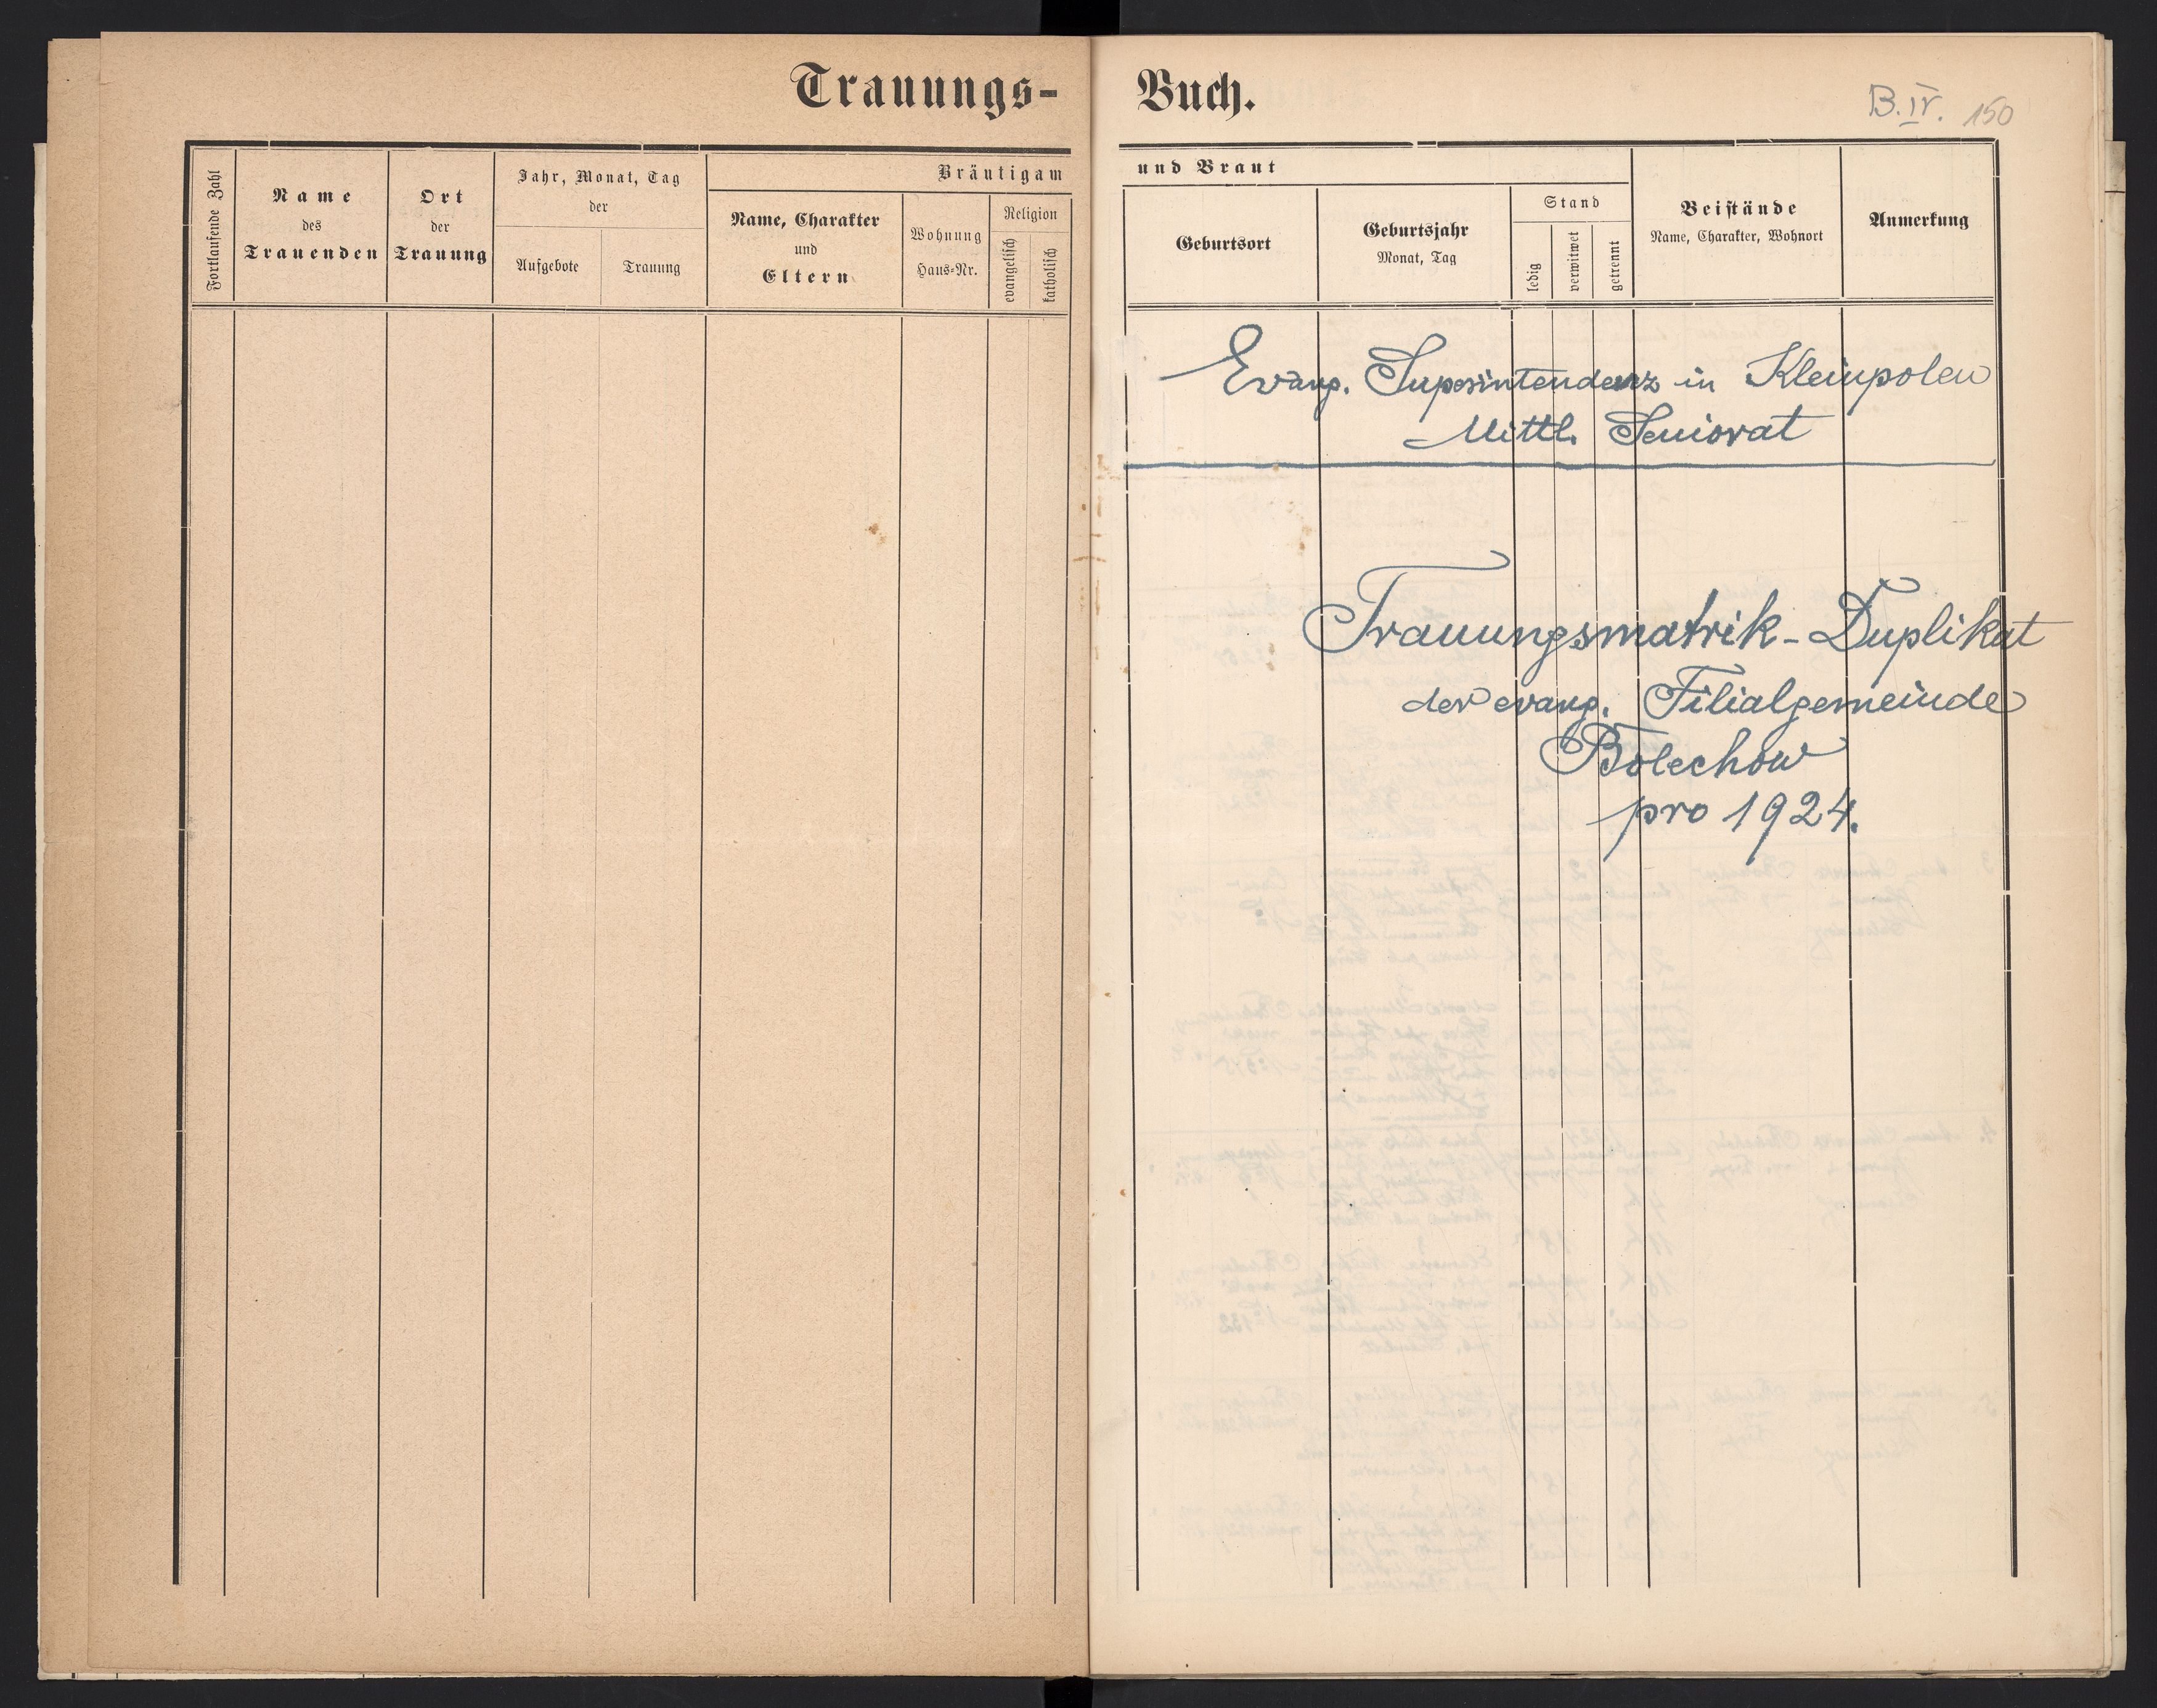 Trauungs-
Buch.
B. IV. 150
Fortlaufende Zahl
Name
des
Trauenden
Ort
der
Trauung
Jahr, Monat, Tag
der
Aufgebote
Trauung
Bräutigam
Name, Charakter
und
Eltern
Wohnung
Haus-Nr.
Religion
evangelisch
katholisch
und Braut
Geburtsort
Geburtsjahr
Monat, Tag
Stand
ledig
verwitwet
getrennt
Beistände
Name, Charakter, Wohnort
Anmerkung
Evang. Superintendenz in Kleinpolen
Mittl. Seniorat
Trauungsmatrik-Duplikat
der evang. Filialgemeinde
Bolechow
pro 1924.